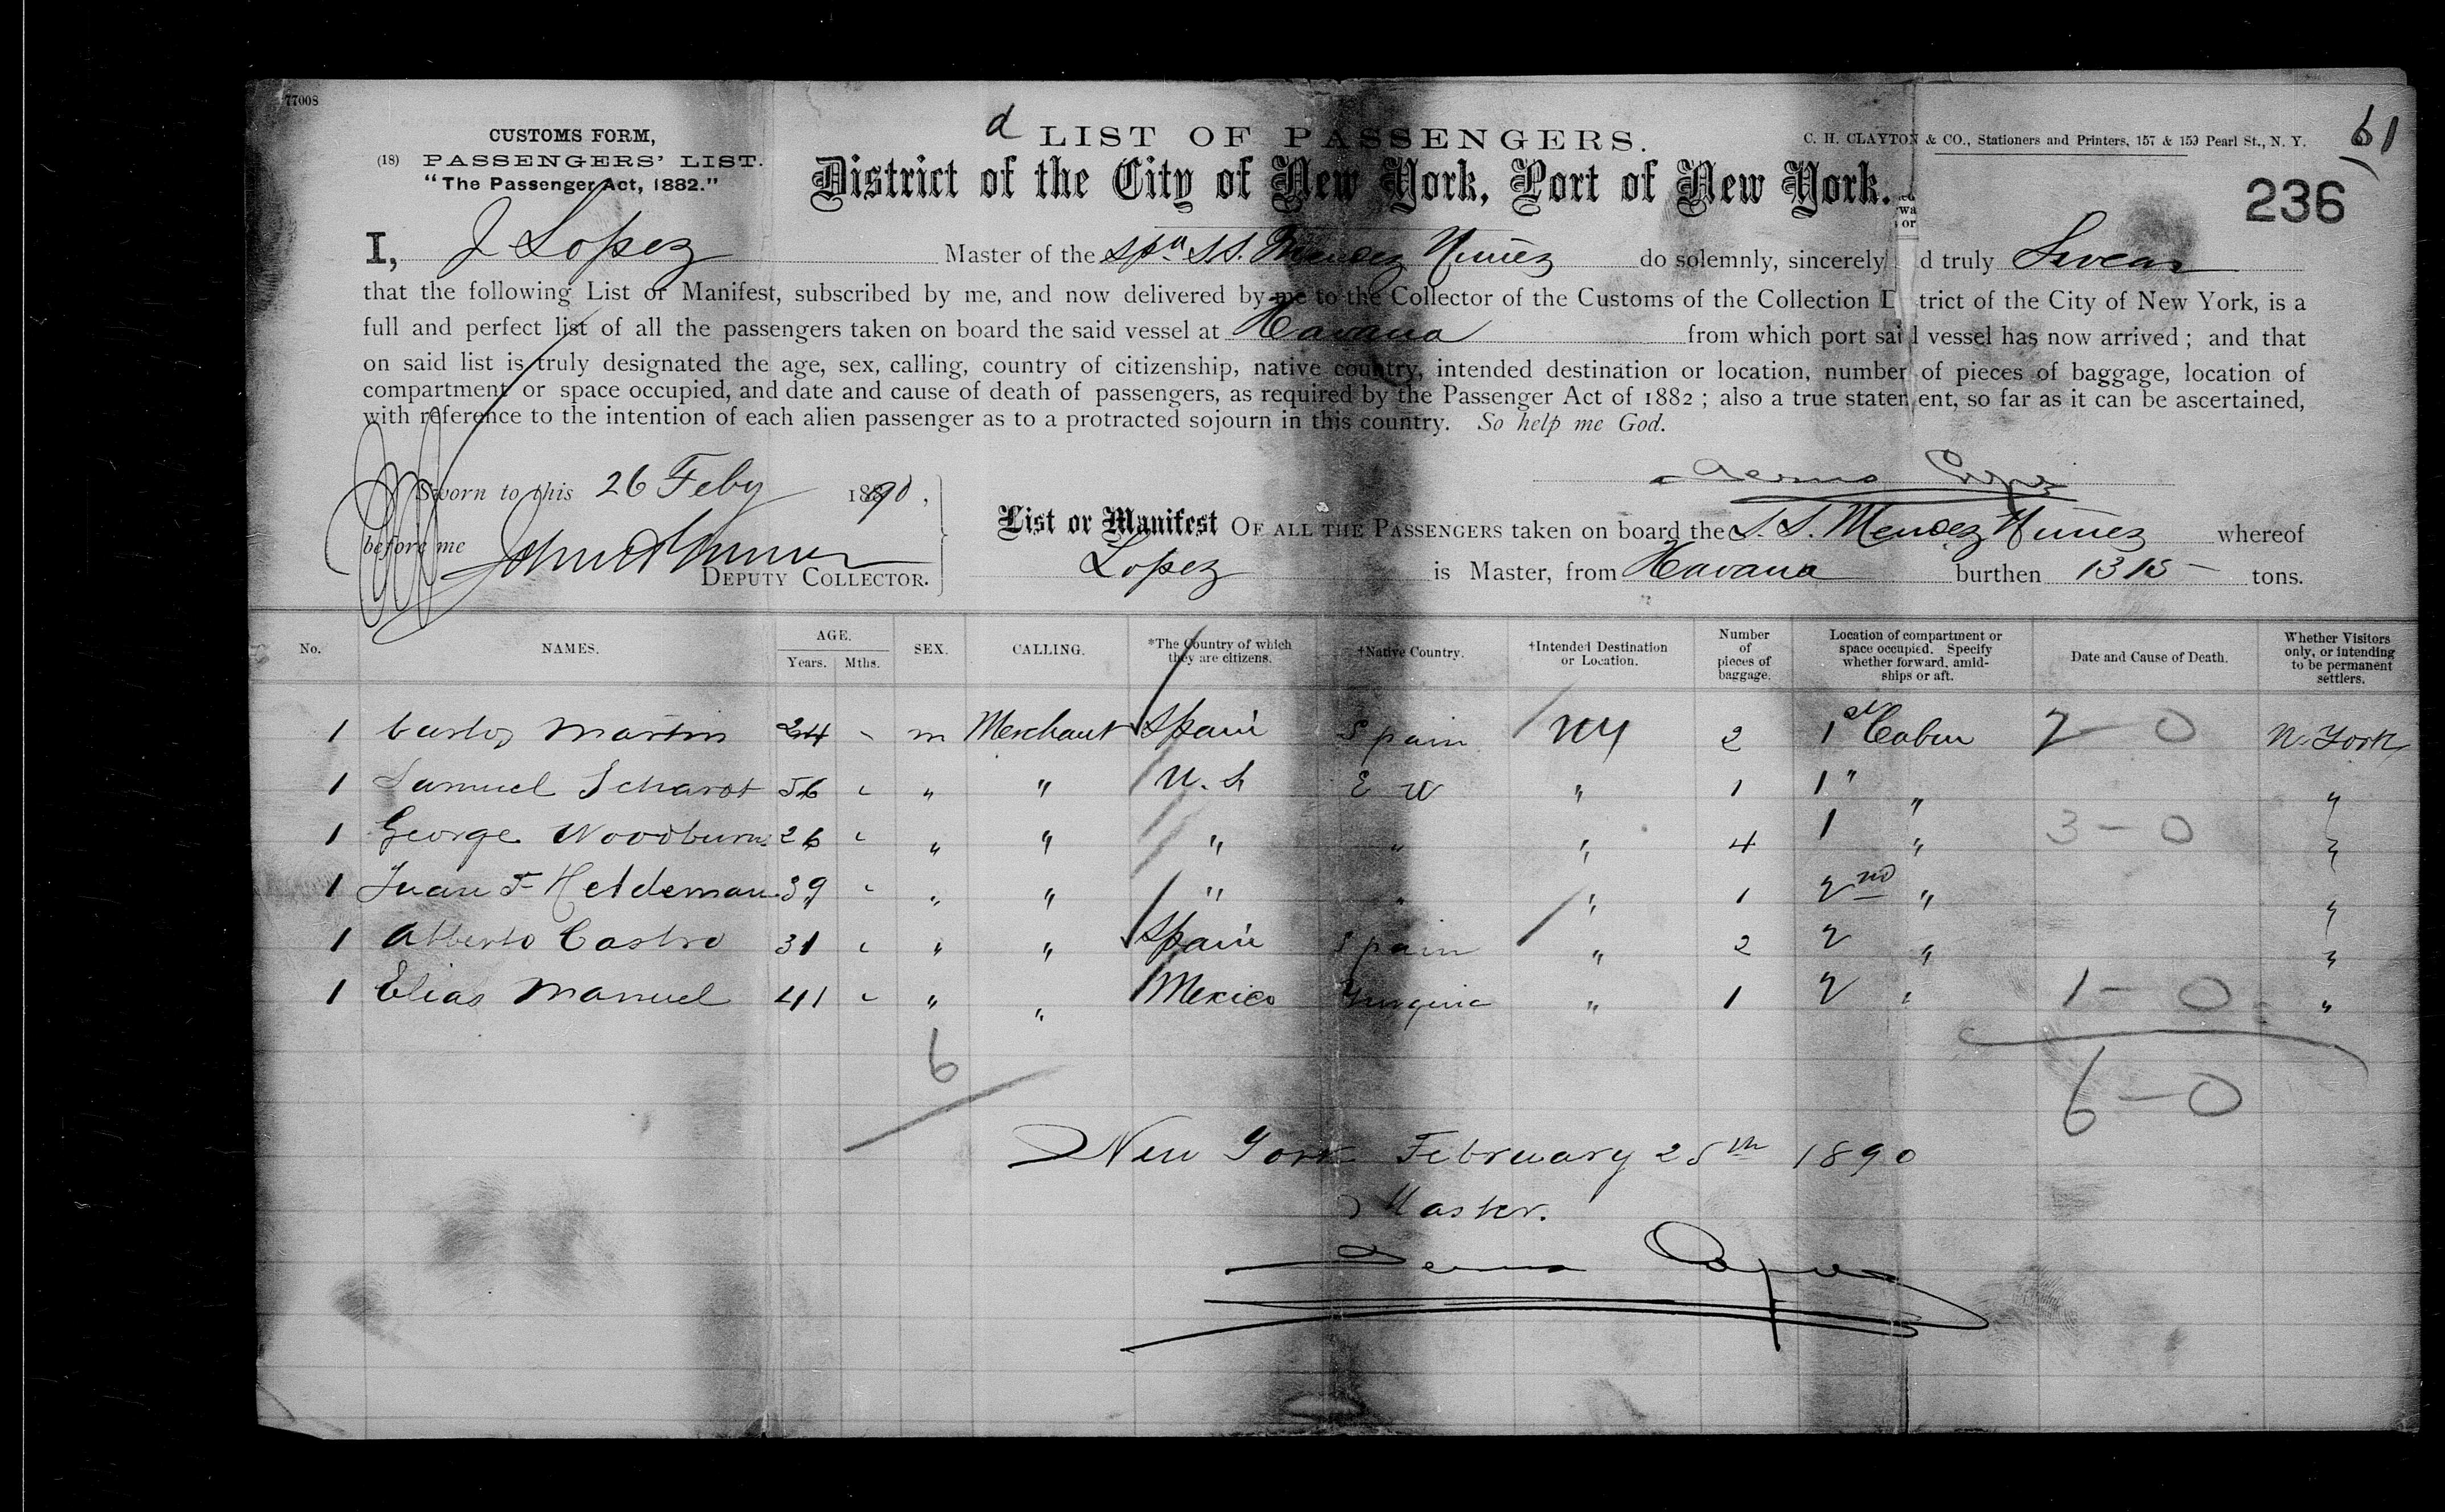 77008
CUSTOMS FORM,
(18) PASSENGERS' LIST.
"The Passenger Act, 1882."
d LIST OF PASSENGERS.
C. H. CLAYTON & CO., Stationers and Printers, 157 & 159 Pearl St., N. Y.
61
District of the City of New York, Port of New York.
236
I, J Lopez Master of the Spa. S.S. Mendez Nuñez do solemnly, sincerely d truly Swear
that the following List or Manifest, subscribed by me, and now delivered by me to the Collector of the Customs of the Collection D trict of the City of New York, is a
full and perfect list of all the passengers taken on board the said vessel at Havana from which port said vessel has now arrived; and that
on said list is truly designated the age, sex, calling, country of citizenship, native country, intended destination or location, number of pieces of baggage, location of
compartment or space occupied, and date and cause of death of passengers, as required by the Passenger Act of 1882; also a true statement, so far as it can be ascertained,
with reference to the intention of each alien passenger as to a protracted sojourn in this country. So help me God.
Sworn to this 26 Feby 1890,
before me
DEPUTY COLLECTOR.
List or Manifest OF ALL THE PASSENGERS taken on board the S. S. Mendez Nuñez whereof
Lopez is Master, from Havana burthen 1315 - tons.
No. NAMES. AGE. Years. Mths. SEX. CALLING. *The Country of which they are citizens. †Native Country. †Intended Destination or Location. Number of pieces of baggage. Location of compartment or space occupied. Specify whether forward, amidships or aft. Date and Cause of Death. Whether Visitors only, or intending to be permanent settlers.
1 Carlos Martin 24 - m Merchant Spain Spain NY 2 1st Cabin 2 - 0 N. York
1 Samuel 56 " " " U. S " 1 1 " " "
1 George Woodburn 26 " " " " " " 4 1 " 3 - 0 "
1 Juan F Heldeman 39 " " " " " " 1 2nd " "
1 Alberto Castro 31 " " " Spain Spain " 2 2 " "
1 Elias Manuel 41 " " " Mexico " 1 2 " 1 - 0 "
6
6 - 0
New York February 25th 1890
Master.